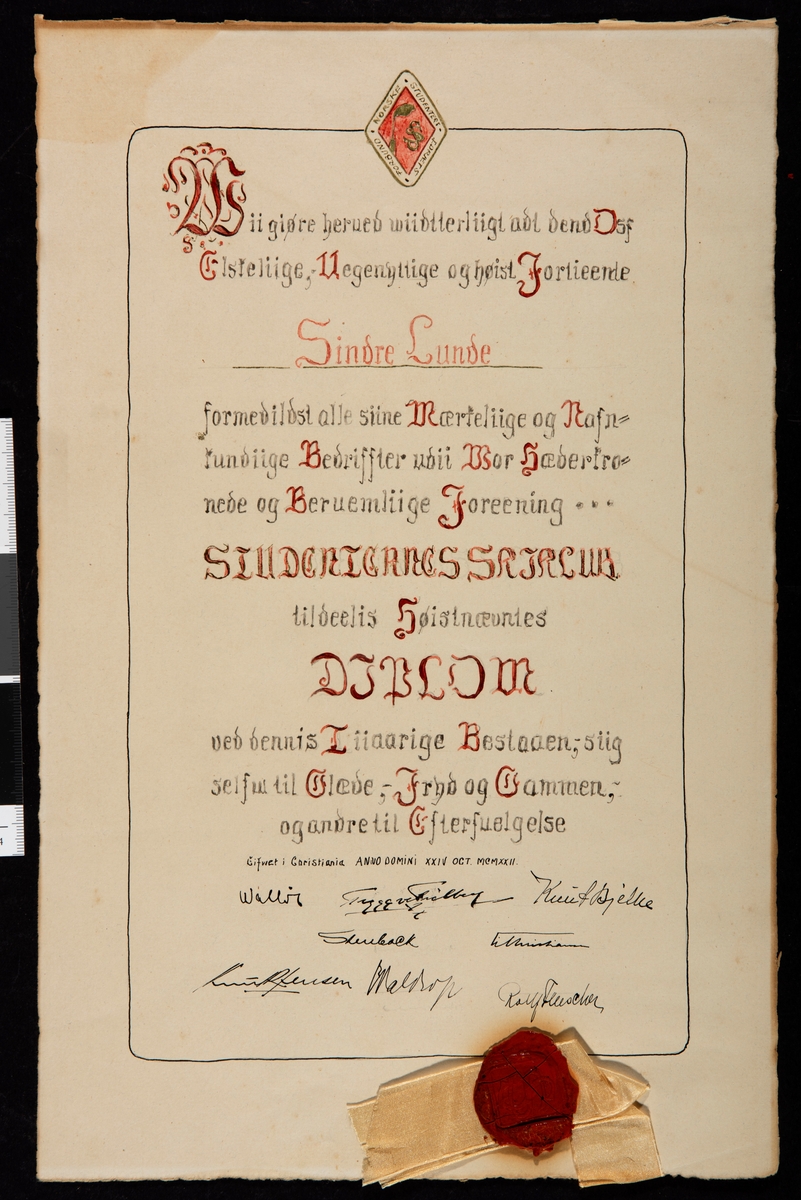 NORSKE STUDENTERS IDRETS FORBUND
Wii giøre herved wiidtterliigt adt dend Osf
Elskeliige,- Uegenyttige og høist Fortieente
Sindre Lunde
formedildst alle siine Mærkeliige og Nafn=
kundiige Bedriffter udii Wor Hæderkro=
nede og Beruemliige Foreening ...
STUDENTERNES SKIKLUB
tildeelis Høistnævntes
DIPLOM
ved dennis Tiiaarige Bestaaen,- siig
selfw til Glæde,- Fryd og Gammen,-
og andre til Efterfuelgelse
Gifwet i Christiania ANNO DOMINI XXIV OCT. MCMXXII.
Wallør Trygve Knut Bjelke
Stenback
Knut Jensen Waldrop Rolf